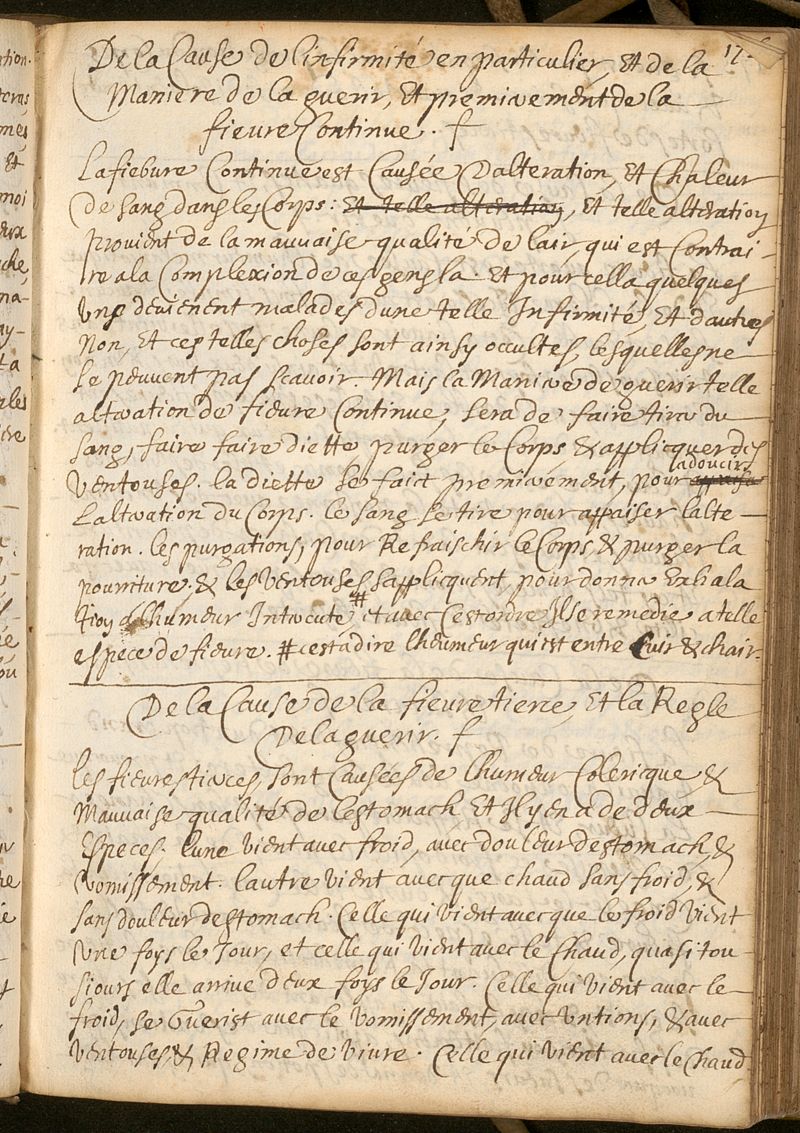 17.
De la Cause de linfirmité en particulier, Et de la
Maniere de la guerir, Et premierement de la
fieure Continue.
La fiebure Continue est Causée Dalteration, Et Chaleur
de sang dans les Corps: Et telle alteration, Et telle alteration
prouient de la mauuaise qualité de lair, qui est Contrai-
re a la Complexion de ces gens la. Et pour cella quelques
Uns deuienent malades dune telle Infirmité, Et dautres
Non, Et ces telles choses sont ainsy occultes, lesquelles ne
se peuuent pas scauoir. Mais la Maniere de guerir telle
alteration de fieure Continue, sera de faire tirer du
sang, faire faire diette, purger le Corps & applicquer des
Ventouses. la diette se faict premierement, pour adoucir
Lalteration du Corps. le sang se tire pour appaiser lalte-
ration. les purgations, pour Refraischir le Corps, & purger la
pourriture. & les Ventouses sapplicquent, pour donner Exhala
tion a lhumeur Intercuté # et auec Cest ordre Il se remedie a telle
espece de fieure. # cest a dire lheumeur qui est entre Cuir & chair.
De la Cause de la fieure tierce, Et la Regle
De la guerir.
Les fieures tierces, sont Causées de lhumeur Colericque, &
Mauuaise qualité de lestomach. Et Il y en a de deux
Especes. lune Vient auec froid, auec douleur destomach, &
Vomissement. lautre Vient auecque chaud sans froid, &
sans douleur destomach. Celle qui Vient auecque le froid Vient
Une foys le Jour, et celle qui Vient auec le Chaud, quasi tou-
siours elle arriue deux foys le Jour. Celle qui Vient auec le
froid, se Guerist auec le Vomissement, auec Untions, & auec
Ventouses & Regime de Viure. Celle qui Vient auec le Chaud